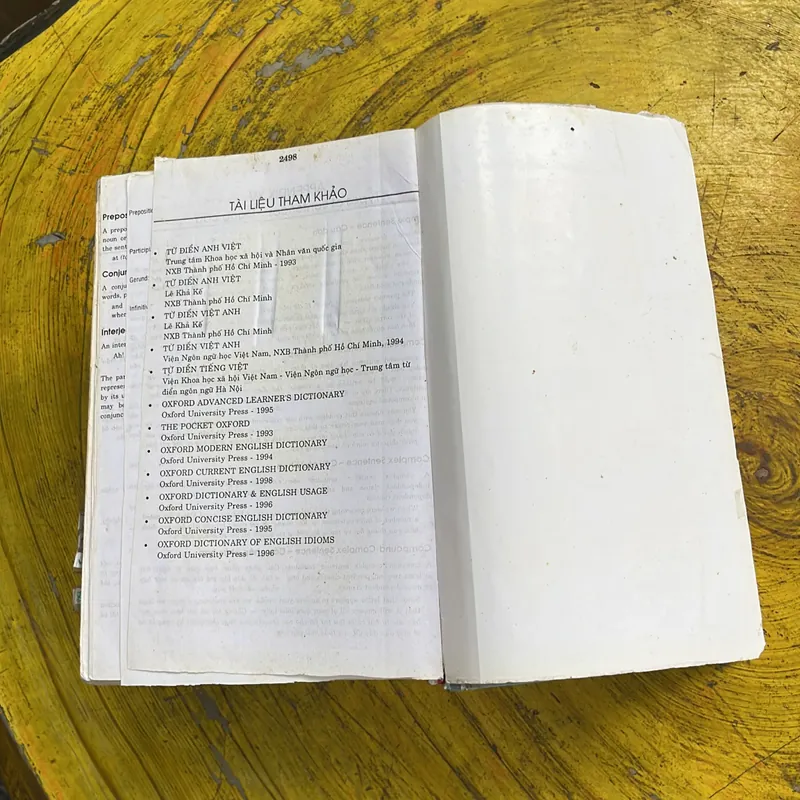 2498
TÀI LIỆU THAM KHẢO
• TỪ ĐIỂN ANH VIỆT
Trung tâm Khoa học xã hội và Nhân văn quốc gia
NXB Thành phố Hồ Chí Minh - 1993
• TỪ ĐIỂN ANH VIỆT
Lê Khả Kế
NXB Thành phố Hồ Chí Minh
• TỪ ĐIỂN VIỆT ANH
Lê Khả Kế
NXB Thành phố Hồ Chí Minh
• TỪ ĐIỂN VIỆT ANH
Viện Ngôn ngữ học Việt Nam, NXB Thành phố Hồ Chí Minh, 1994
• TỪ ĐIỂN TIẾNG VIỆT
Viện Khoa học xã hội Việt Nam - Viện Ngôn ngữ học - Trung tâm từ
điển ngôn ngữ Hà Nội
• OXFORD ADVANCED LEARNER'S DICTIONARY
Oxford University Press - 1995
• THE POCKET OXFORD
Oxford University Press - 1993
• OXFORD MODERN ENGLISH DICTIONARY
Oxford University Press - 1994
• OXFORD CURRENT ENGLISH DICTIONARY
Oxford University Press - 1998
• OXFORD DICTIONARY & ENGLISH USAGE
Oxford University Press - 1996
• OXFORD CONCISE ENGLISH DICTIONARY
Oxford University Press - 1995
• OXFORD DICTIONARY OF ENGLISH IDIOMS
Oxford University Press – 1996
A prepo
noun or
the sent
at
A conju
words, p
and
whe
An inter
Ah!
The par
represe
by its u
may b
conjunc